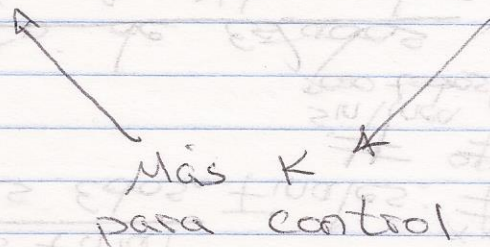 Más K
para control